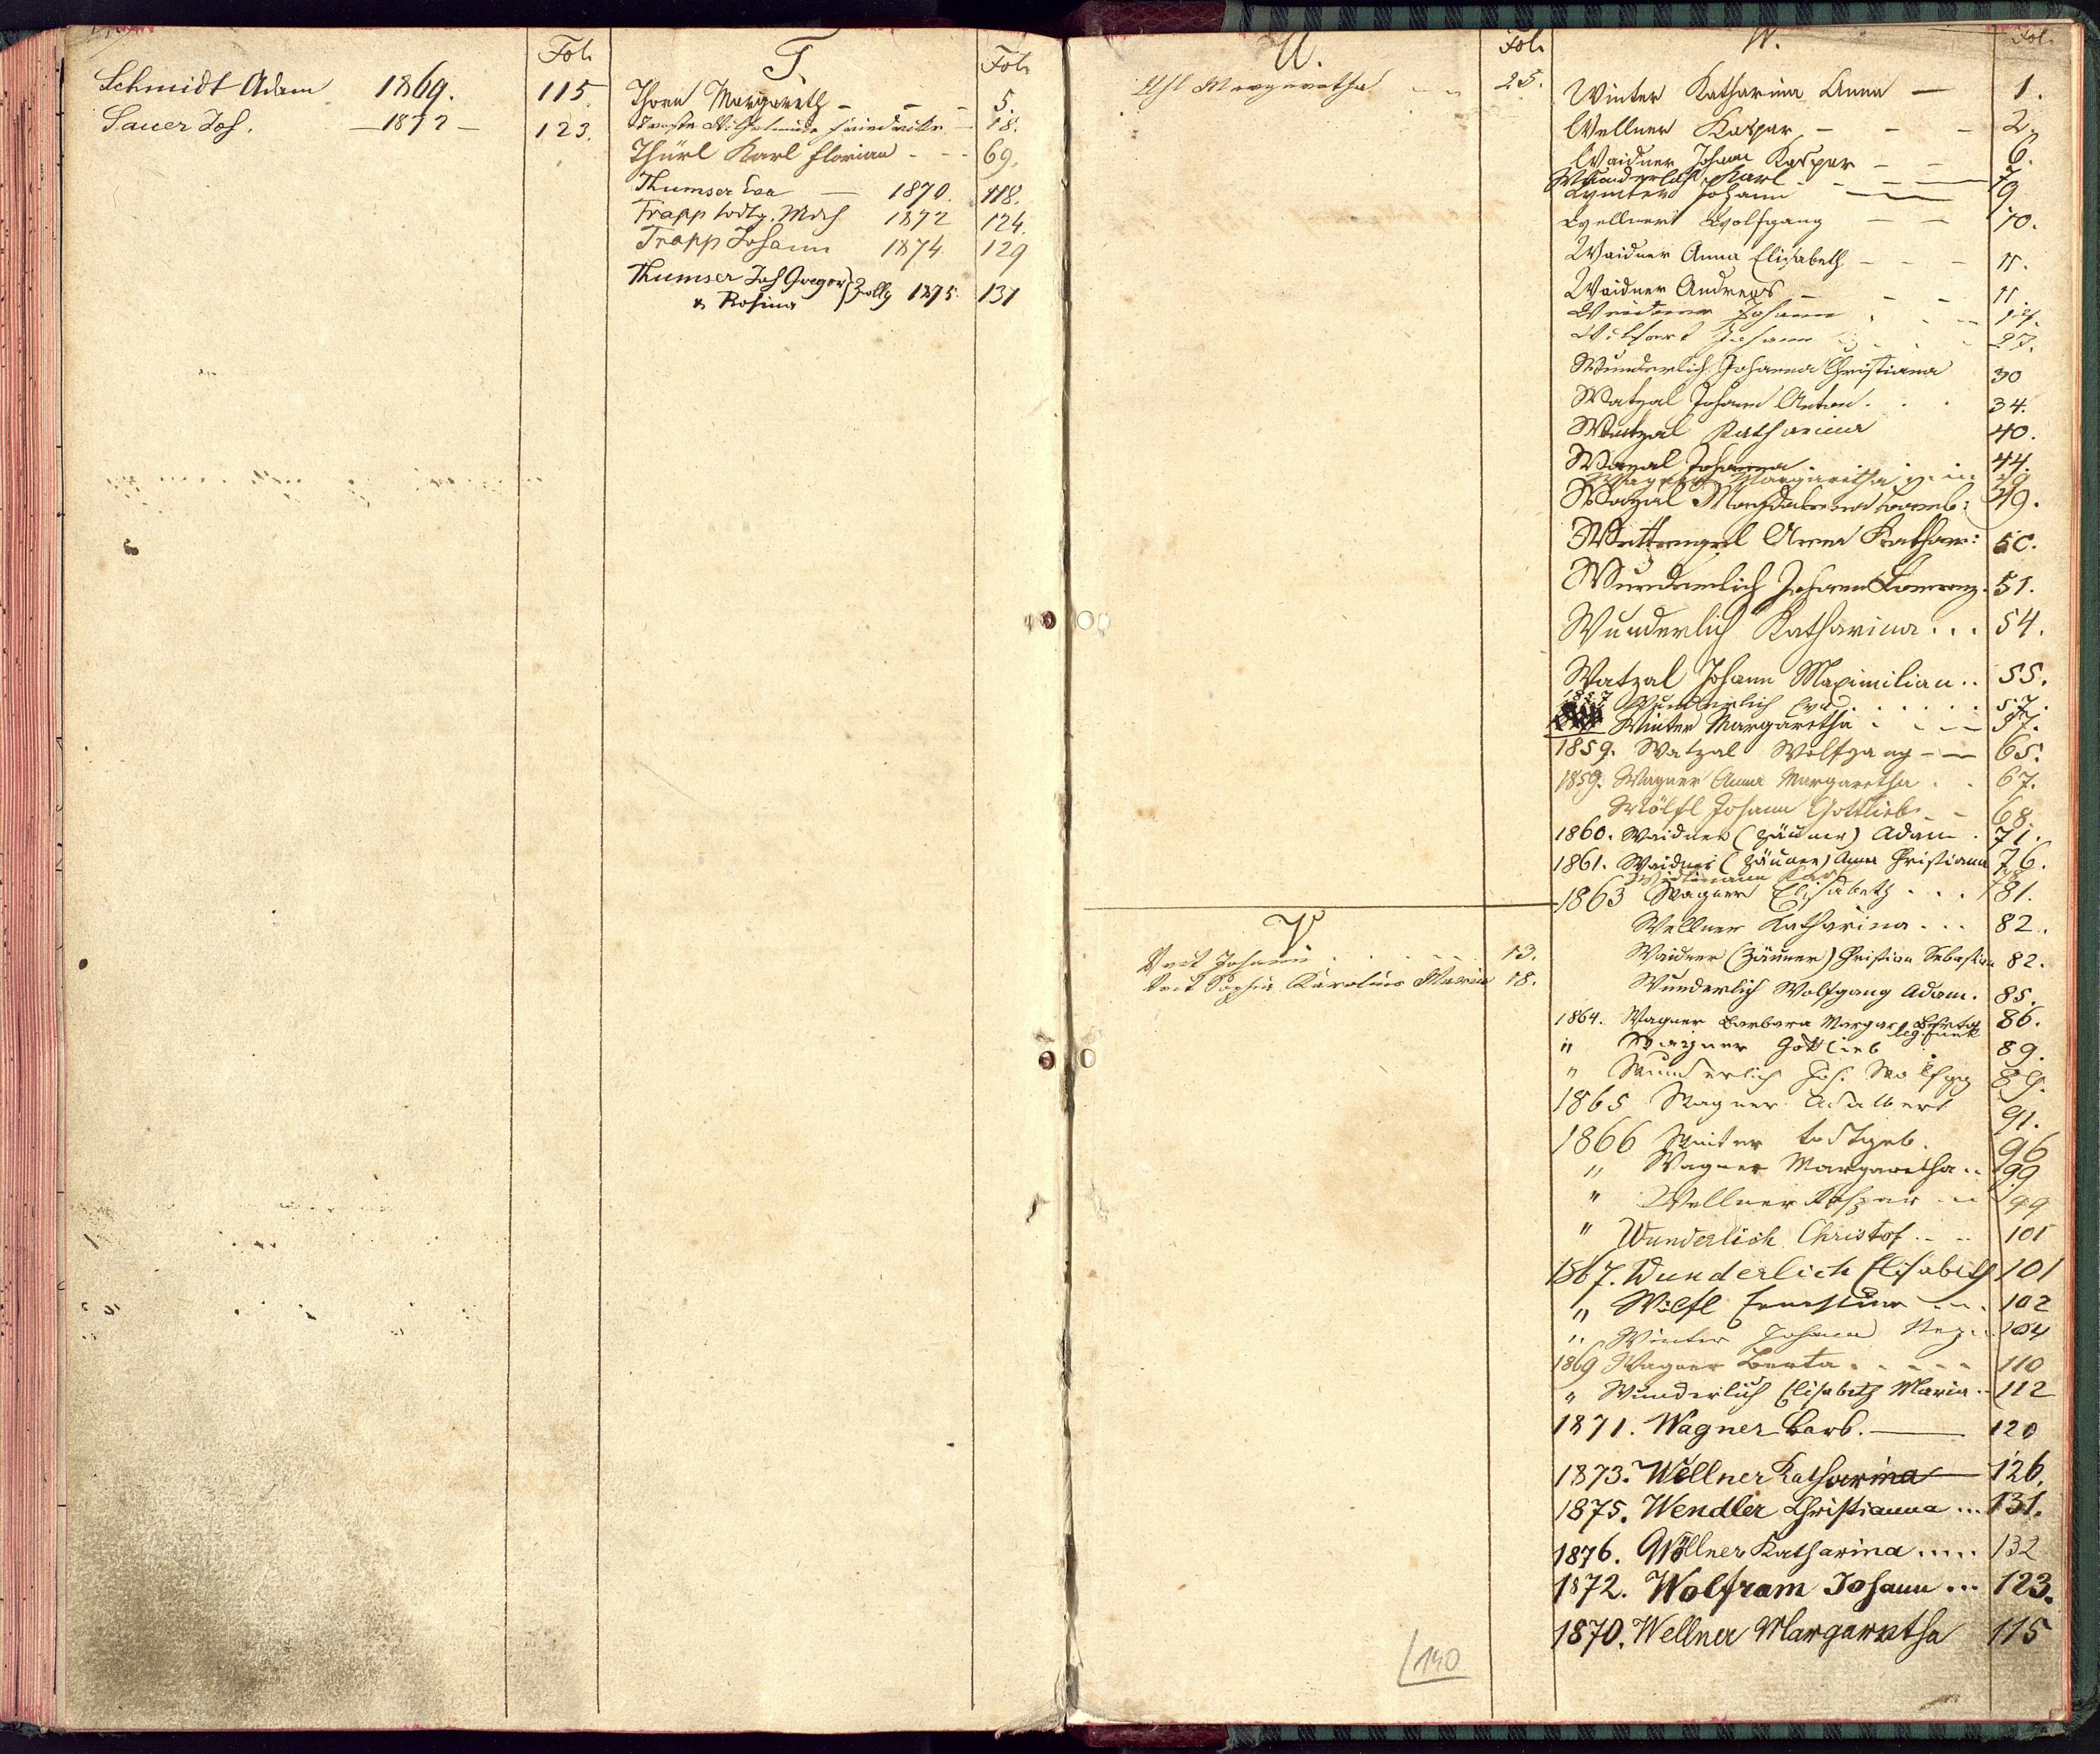 Fol.
Schmidt Adam 1869. 115
Sauer Jos. —1872— 123.
T. Fol.
Thorn Margareth - - - 5.
Wilhelmine Friedrike - 18.
Thürl Karl Florian - - - 69.
Thumser Eva — 1870. 118.
Trapp todtg. Mdch 1872 124.
Trapp Johann 1874. 129
Thumser Joh Gregor } Zwllg 1875. 131
& Rosina
U. Fol.
Uhl Margaretha - - 25.
V.
Veit Johann . . . . . 13.
Veit Sophie Karolina Maria 18.
W. Fol.
Winter Katharina Anna — 1.
Wellner Kaspar - - - 2.
Waidner Johann Kaspar - - 6.
Wunderlich Karl - - — 7
Winter Johann — 9
Wellner Wolfgang - - 10.
Waidner Anna Elisabeth - - - 11.
Waidner Andreas - - - 11.
Johann . - - 17.
Johann 27.
Wunderlich Johanna Christiana 30
Watzal Johann Anton . . . 34.
Watzal Katharina 40.
Wazal Johanna . 44.
Wagner Margaretha
Wazal Magdalena 49.
Wettengel Anna Kathar: 50.
Wunderlich Johann Lorenz . 51.
Wunderlich Katharina . . . 54.
Watzal Johann Maximilian . . 55.
1857 Wunderlich Eva . . . . . 57.
Winter Margaretha . - - — 57.
1859. Watzal Wolfgang - — 65.
1859. Wagner Anna Margaretha . . 67.
Wölfl Johann Gottlieb . - 68.
1860. Waidner (Zäuner) Adam . 71.
1861. Waidner (Zäuner) Anna Christiana 76.
Widtmann Karl 78
1863 Wagner Elisabeth . . . 81.
Wellner Katharina . . . 82.
Waidner (Zäuner) Christian Sebastian 82.
Wunderlich Wolfgang Adam . 85.
1864. Wagner Barbara Margar Berta 86.
leg. Funk
" Wagner Gottlieb 89.
" Wunderlich Joh. Wolfgg 89.
1865 Wagner Adalbert 91.
1866 Winter todtgeb. 96
" Wagner Margaretha . . 99
" Wellner Kaspar - - 99
" Wunderlich Christof . - - 101
1867. Wunderlich Elisabeth 101
" Wölfl Ernestine - - . 102
" Winter Johann 104
1869 Wagner Berta . . - - - 110
" Wunderlich Elisabeth Maria . - 112
1871. Wagner Barb. — 120
1873. Wellner Katharina — 126.
1875. Wendler Christianna ... 131.
1876. Wöllner Katharina ..... 132
1872. Wolfram Johann ... 123.
1870. Wellner Margaretha 115
140